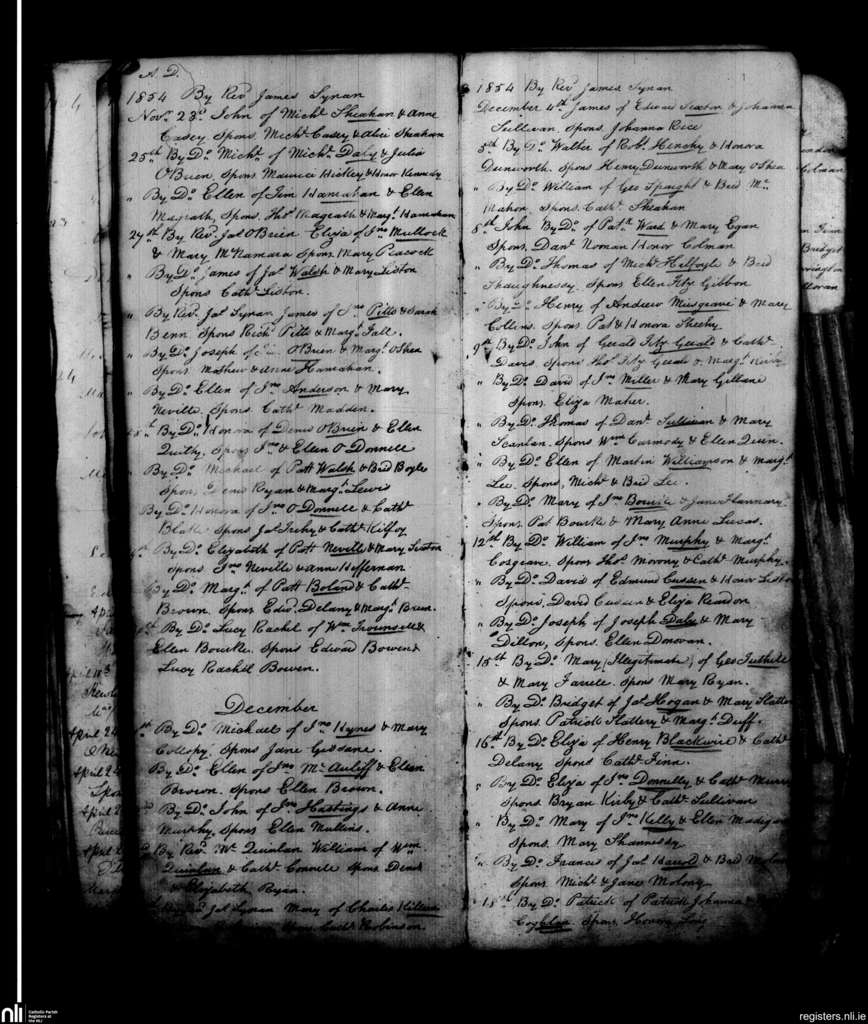 A. D.
1854 By Revd James Synan
Novr 23d John of Michl Sheahan & Anne
Casey Spons. Michl Casey & Alice Sheahan
25th By Do Michl of Michl Daly & Julia
OBrien, Spons Maurice Hickey & Honor Kennedy
" By Do Ellen of Tim Hanrahan & Ellen
Magrath, Spons. Thos Magrath & Margt Hanrahan
27th By Revd Jas OBrien Eliza of Jno Mullock
& Mary McNamara Spons. Mary Peacock
" By Do James of Jas Walsh & Mary Liston
Spons Cathe Liston.
" By Revd Jas Synan James of Jno Pitts & Sarah
Benn. Spons Richd Pitts & Margt Fall.
" By Do Joseph of OBrien & Margt OShea
Spons. Mathew & Anne Hanrahan.
" By Do Ellen of Jno Anderson & Mary
Neville. Spons. Cathe Madden.
By Do Honora of Denis OBrien & Ellen
Spons Jno & Ellen O Donnell
" By Do Michael of Patt Walsh & Bid Boyle
Spons Denis Ryan & Margt Lewis
By Do Honora of Jno O'Donnell & Cathe
Blake Spons Jas & Cathe Kilfoy
By Do Elizabeth of Patt Neville & Mary Sexton
Spons. Jno Neville & Ann Heffernan
By Do Margt of Patt Boland & Cathe
Brown. Spons Edwd Delany & Margt
By Do Lucy Rachel of Wm &
Ellen Bourke. Spons Edward Bowen &
Lucy Rachell Bowen.
December
1st By Do Michael of Jno Hynes & Mary
Collopy. Spons Jane Gessane.
By Do Ellen of Jno McAuliff & Ellen
Brown. Spons Ellen Brown.
By Do John of Jno Hastings & Anne
Murphy, Spons Ellen Mullins.
By Revd Wm Quinlan William of Wm
Quinlan & Cathe Connell Spons Denis
& Elizabeth Ryan.
Jas Synan Mary of Charles
Spons. Cathe Robinson.
1854 By Revd James Synan
December 4th James of Edward Sexton & Johanna
Sullivan. Spons Johanna Rice
5th By Do Walter of Robt Henchy & Honora
Dunworth. Spons Henry Dunworth & Mary OShea
" By Do William of Geo Spaight & Bid Mc
Mahon Spons. Cathe Sheahan
8th John By Do of Patk Ward & Mary Egan
Spons, Danl Noman Honor Colman
" By Do Thomas of Michl & Bid
Shaughnessy. Spons Ellen Fitz Gibbon
" By Do Henry of Andrew Musgrave & Mary
Collins. Spons Pat & Honora Sheehy
9th By Do John of Gerald Fitz Gerald & Cathe
Davis. Spons Thos Fitz Gerald & Margt
" By Do David of Jno Miller & Mary Gillane
Spons. Eliza Maher.
" By Do Thomas of Danl Sullivan & Mary
Scanlan. Spons Wm Carmody & Ellen Quin.
" By Do Ellen of Martin Williamson & Margt
Lee. Spons, Michl & Bid Lee.
" By Do Mary of Jno & Jane Hannary
Spons. Pat Bourke & Mary Anne Lucas.
12th By Do William of Jno Murphy & Margt
Cosgrave. Spons Thos Morony & Cathe Murphy.
" By Do David of Edmund Cussen & Honor
Spons. David Cussen & Eliza Reardon
" By Do Joseph of Joseph Daly & Mary
Dillon, Spons. Ellen Donovan.
15th By Do Mary (Illegitimate) of Geo Tuthill
& Mary Farrell. Spons Mary Ryan.
" By Do Bridget of Jas Hogan & Mary
Spons. Patrick Slattery & Margt Duff.
16th By Do Eliza of Henry Blackwill & Cathe
Delany Spons Cathe Finn.
" By Do Eliza of Jno Donnelly & Cathe
Spons Bryan Kirby & Cathe Sullivan
" By Do Mary of Jno Kelly & Ellen
Spons. Mary Shannessy
" By Do Frances of Jas & Bid
Spons Michl & Jane Molony
18th By Do Patrick of Patrick Johanna
Coghlan Spons. Honora Long
April 24
April 24
nli
Catholic Parish
Registers at
the NLI
registers.nli.ie